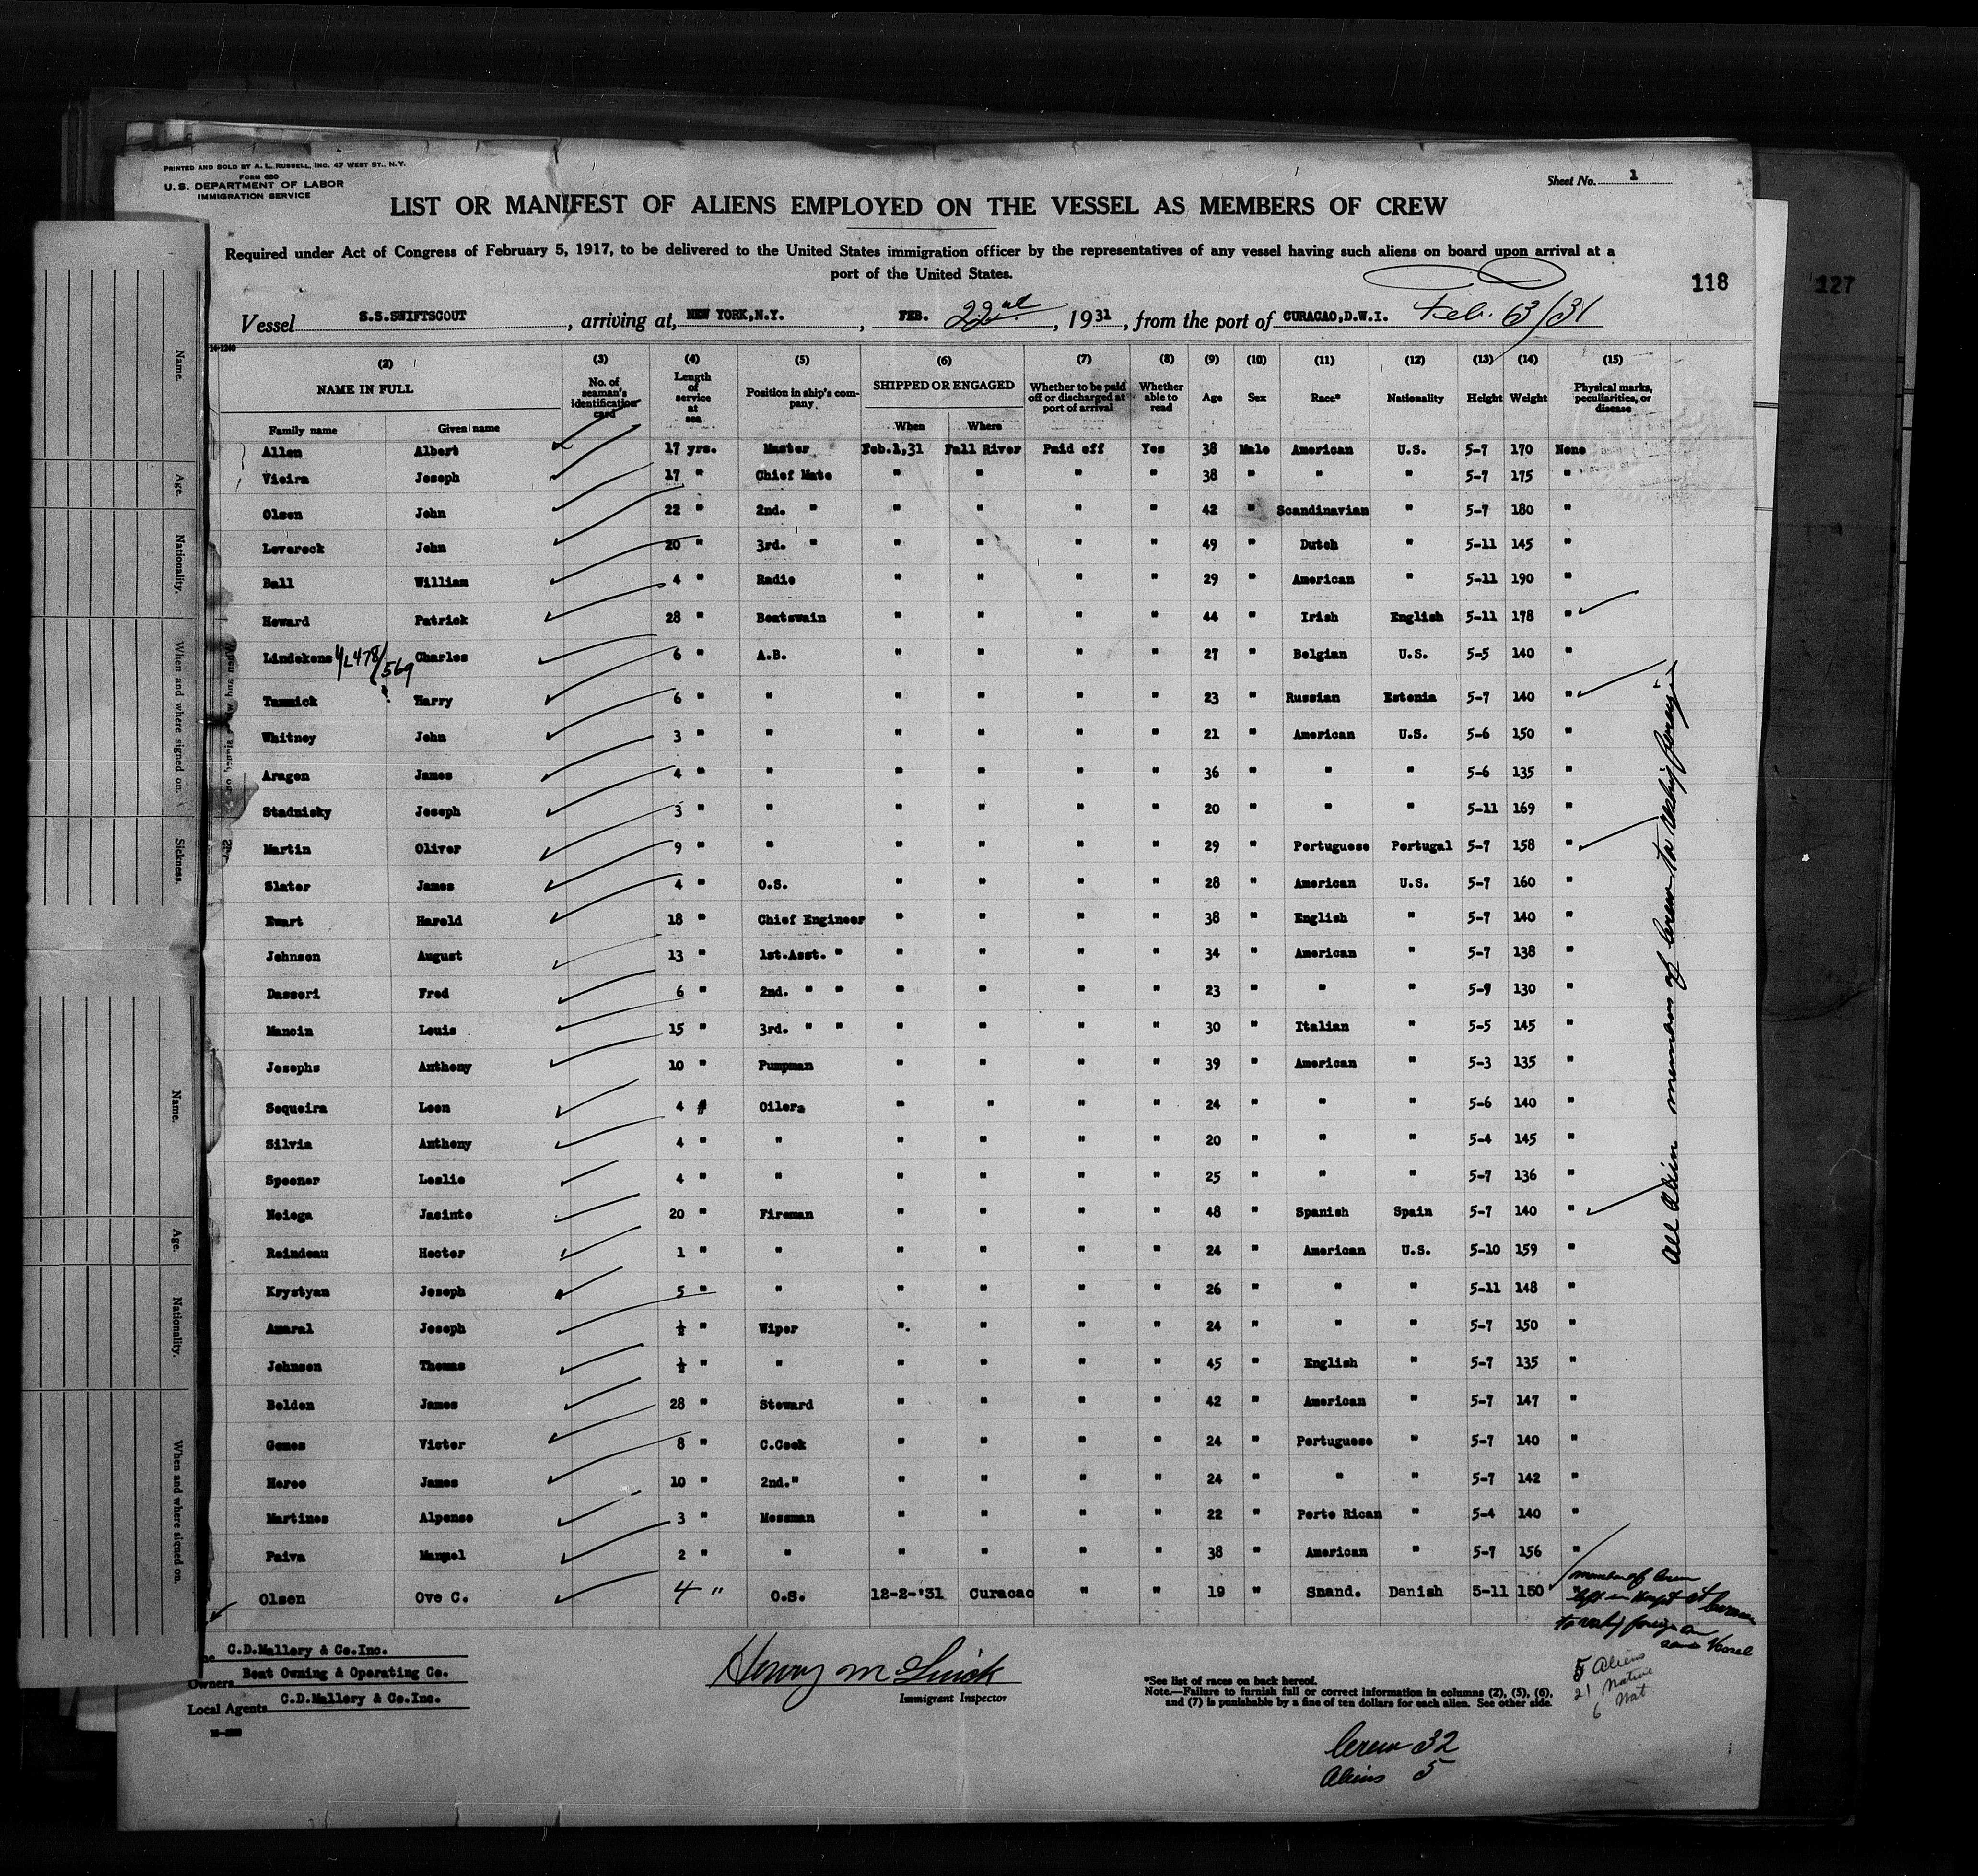 PRINTED AND SOLD BY A. L. RUSSELL, INC. 47 WEST ST., N.Y.
FORM 680
U.S. DEPARTMENT OF LABOR
IMMIGRATION SERVICE
Sheet No. 1
LIST OR MANIFEST OF ALIENS EMPLOYED ON THE VESSEL AS MEMBERS OF CREW
Required under Act of Congress of February 5, 1917, to be delivered to the United States immigration officer by the representatives of any vessel having such aliens on board upon arrival at a
port of the United States.
118
127
Vessel S.S.SWIFTSCOUT, arriving at, NEW YORK,N.Y., FEB. 22nd, 1931, from the port of CURACAO,D.W.I. Feb. 13/31
14-1240
(2) (3) (4) (5) (6) (7) (8) (9) (10) (11) (12) (13) (14) (15)
NAME IN FULL No. of seaman's identification card Length of service at sea Position in ship's company SHIPPED OR ENGAGED Whether to be paid off or discharged at port of arrival Whether able to read Age Sex Race* Nationality Height Weight Physical marks, peculiarities, or disease
Family name Given name When Where
Allen Albert 17 yrs. Master Feb.1,31 Fall River Paid off Yes 38 Male American U.S. 5-7 170 None
Vieira Joseph 17 " Chief Mate " " " " 38 " " 5-7 175 "
Olsen John 22 " 2nd. " " " " " 42 " Scandinavian " 5-7 180 "
Levereck John 20 " 3rd. " " " " " 49 " Dutch " 5-11 145 "
Ball William 4 " Radio " " " " 29 " American " 5-11 190 "
Howard Patrick 28 " Boatswain " " " " 44 " Irish English 5-11 178 "
Lindekens 4/L478/569 Charles 6 " A.B. " " " " 27 " Belgian U.S. 5-5 140 "
Tammick Harry 6 " " " " " " 23 " Russian Estonia 5-7 140 "
Whitney John 3 " " " " " " 21 " American U.S. 5-6 150 "
Aragon James 4 " " " " " " 36 " " " 5-6 135 "
Stadnisky Joseph 3 " " " " " " 20 " " " 5-11 169 "
Martin Oliver 9 " " " " " " 29 " Portuguese Portugal 5-7 158 "
Slater James 4 " O.S. " " " " 28 " American U.S. 5-7 160 "
Ewart Harold 18 " Chief Engineer " " " " 38 " English " 5-7 140 "
Johnson August 13 " 1st.Asst. " " " " " 34 " American " 5-7 138 "
Dasseri Fred 6 " 2nd. " " " " " " 23 " " " 5-9 130 "
Mancin Louis 15 " 3rd. " " " " " " 30 " Italian " 5-5 145 "
Josephs Anthony 10 " Pumpman " " " " 39 " American " 5-3 135 "
Sequeira Leon 4 " Oilers " " " " 24 " " " 5-6 140 "
Silvia Anthony 4 " " " " " " 20 " " " 5-4 145 "
Spooner Leslie 4 " " " " " " 25 " " " 5-7 136 "
Neiega Jacinto 20 " Fireman " " " " 48 " Spanish Spain 5-7 140 "
Reindeau Hector 1 " " " " " " 24 " American U.S. 5-10 159 "
Krystyan Joseph 5 " " " " " " 26 " " " 5-11 148 "
Amaral Joseph ½ " Wiper " " " " 24 " " " 5-7 150 "
Johnson Thomas ½ " " " " " " 45 " English " 5-7 135 "
Belden James 28 " Steward " " " " 42 " American " 5-7 147 "
Gomes Victor 8 " C.Cook " " " " 24 " Portuguese " 5-7 140 "
Heroe James 10 " 2nd." " " " " 24 " " " 5-7 142 "
Martines Alponso 3 " Messman " " " " 22 " Porto Rican " 5-4 140 "
Paiva Manuel 2 " " " " " " 38 " American " 5-7 156 "
Olsen Ove C. 4 " O.S. 12-2-'31 Curacao " " 19 " Snand. Danish 5-11 150 "
All Alien members of Crew to reship foreign
member of Crew
to reship foreign on
same Vessel
5 Aliens
21 Native
6 Nat
C.D.Mallory & Co.Inc.
Owners Boat Owning & Operating Co.
Local Agents C.D.Mallory & Co.Inc.
Immigrant Inspector
*See list of races on back hereof.
Note.—Failure to furnish full or correct information in columns (2), (5), (6),
and (7) is punishable by a fine of ten dollars for each alien. See other side.
Crew 32
Aliens 5
Name.
Age.
Nationality.
When and where signed on.
Sickness.
Name.
Age.
Nationality.
When and where signed on.